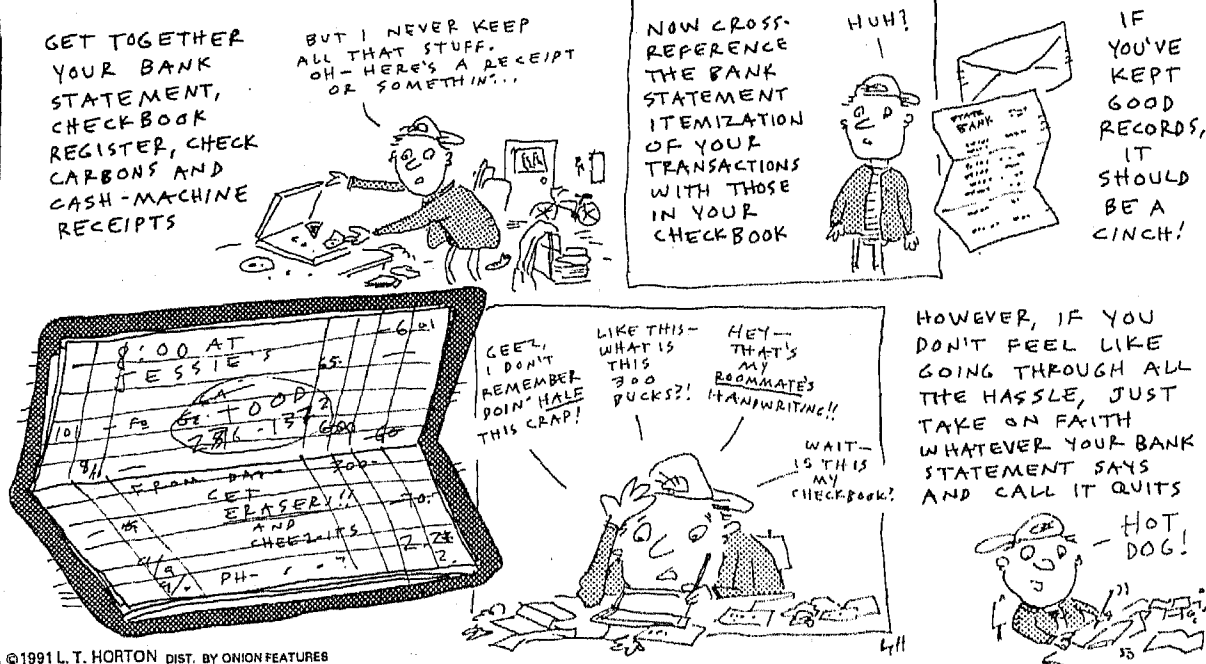 GET TOGETHER
YOUR BANK
STATEMENT,
CHECKBOOK
REGISTER, CHECK
CARBONS AND
CASH-MACHINE
RECEIPTS
BUT I NEVER KEEP
ALL THAT STUFF.
OH- HERE'S A RECEIPT
OR SOMETHIN'...
NOW CROSS-
REFERENCE
THE BANK
STATEMENT
ITEMIZATION
OF YOUR
TRANSACTIONS
WITH THOSE
IN YOUR
CHECKBOOK
HUH?
STATE
BANK
IF
YOU'VE
KEPT
GOOD
RECORDS,
IT
SHOULD
BE A
CINCH!
8:00 AT
JESSIE'S
65-
101
600
60
FROM DAT
300-
GET
ERASERS!!
AND
CHEEZ-ITS
70-
PH-
GEEZ,
I DON'T
REMEMBER
DOIN' HALF
THIS CRAP!
LIKE THIS-
WHAT IS
THIS
300
BUCKS?!
HEY-
THAT'S
MY
ROOMMATE'S
HANDWRITING!!
WAIT-
IS THIS
MY
CHECKBOOK?
HOWEVER, IF YOU
DON'T FEEL LIKE
GOING THROUGH ALL
THE HASSLE, JUST
TAKE ON FAITH
WHATEVER YOUR BANK
STATEMENT SAYS
AND CALL IT QUITS
HOT
DOG!
©1991 L. T. HORTON DIST. BY ONION FEATURES